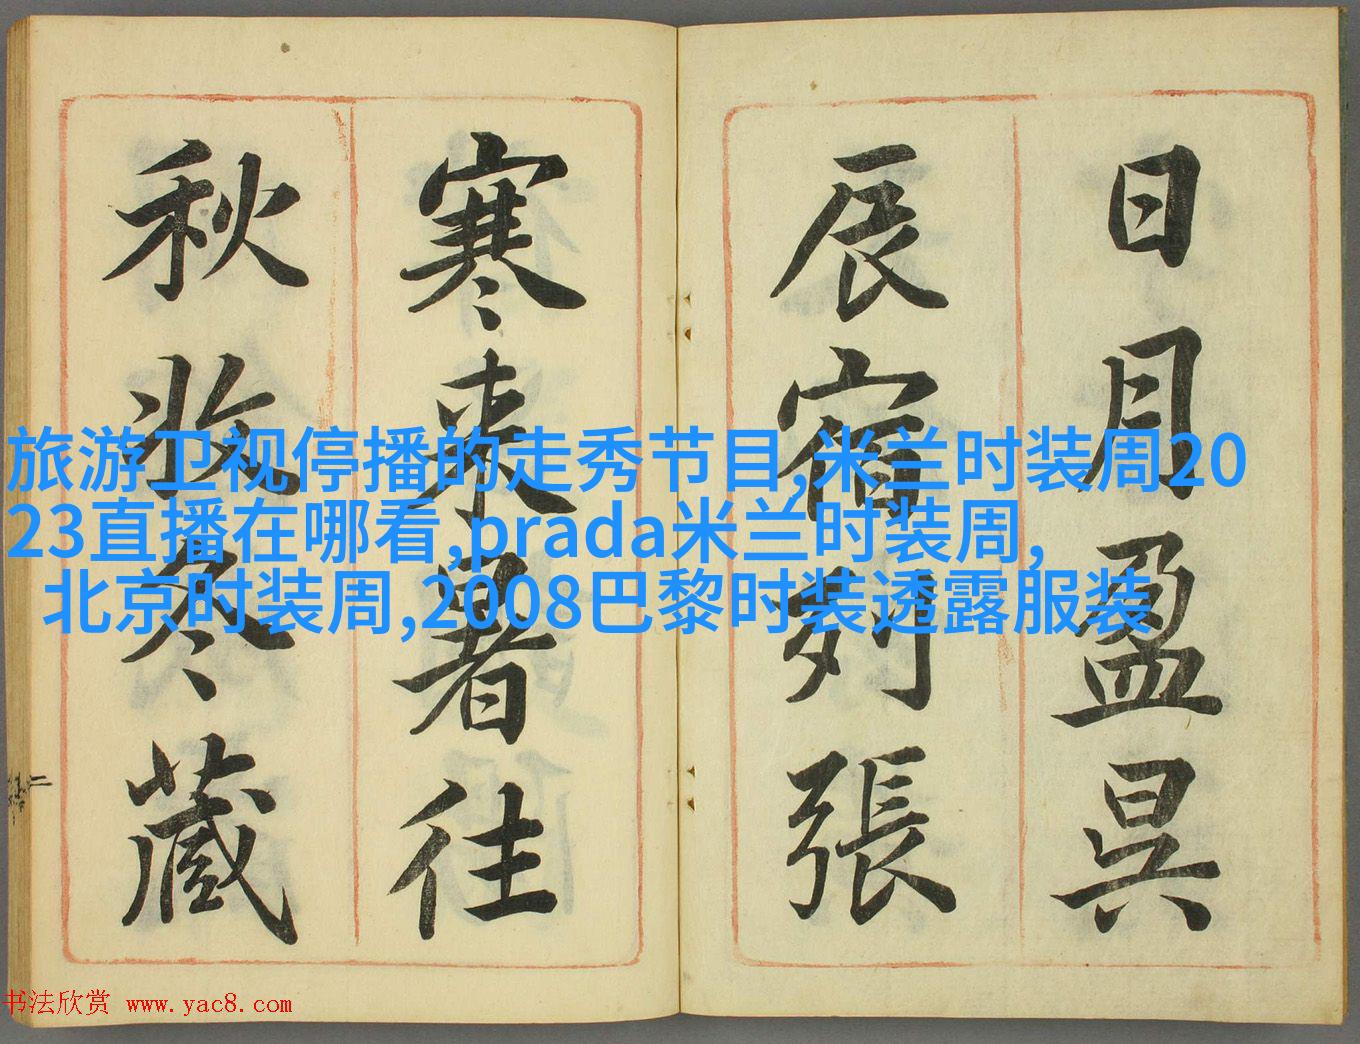 日月盈昃
辰宿列張
寒来暑往
秋收冬藏
旅游卫视停播的走秀节目,米兰时装周20
23直播在哪看,prada米兰时装周,
北京时装周,2008巴黎时装透露服装
书法欣赏 www.yac8.com